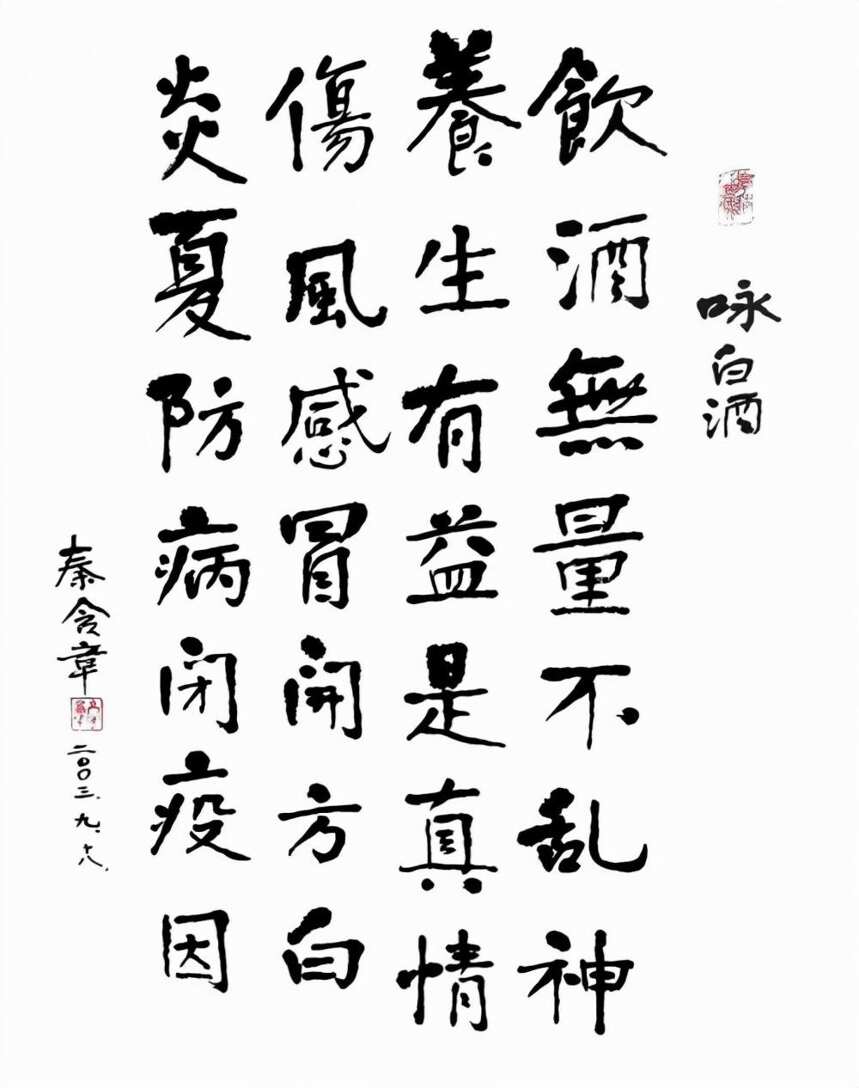 咏白酒
飲酒無量不乱神
養生有益是真情
傷風感冒開方白
炎夏防病闭疫因
秦含章
二〇〇三.九.十八.